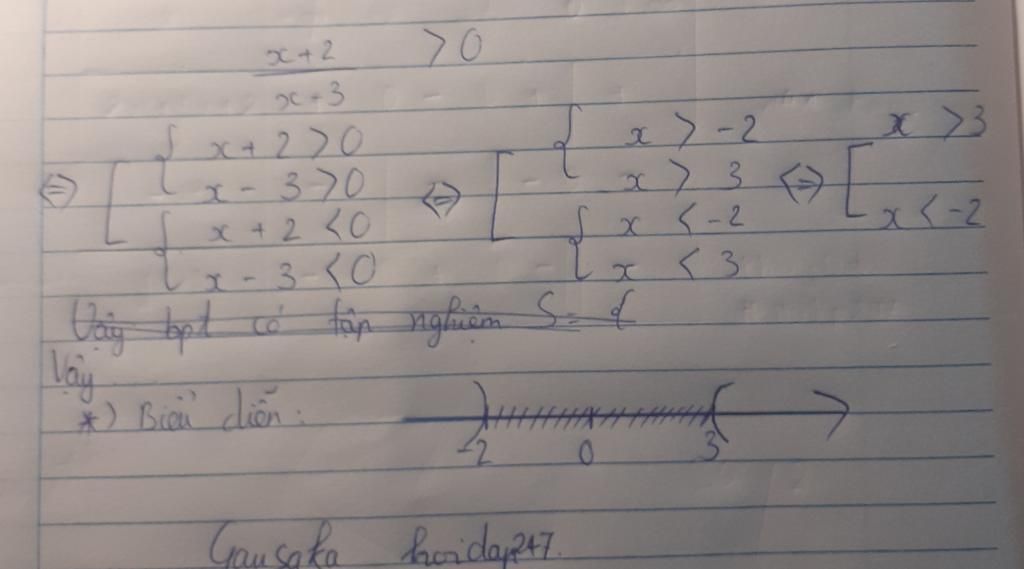 x+2 / x-3 > 0
⇔ [ { x+2 > 0 ⇔ [ { x > -2 ⇔ [ x > 3
x - 3 > 0 x > 3
{ x + 2 < 0 { x < -2 x < -2
x - 3 < 0 x < 3
Vậy bpt có tập nghiệm S = {
Vậy
*) Biểu diễn:
-2 0 3
Gausaka hoidap247.